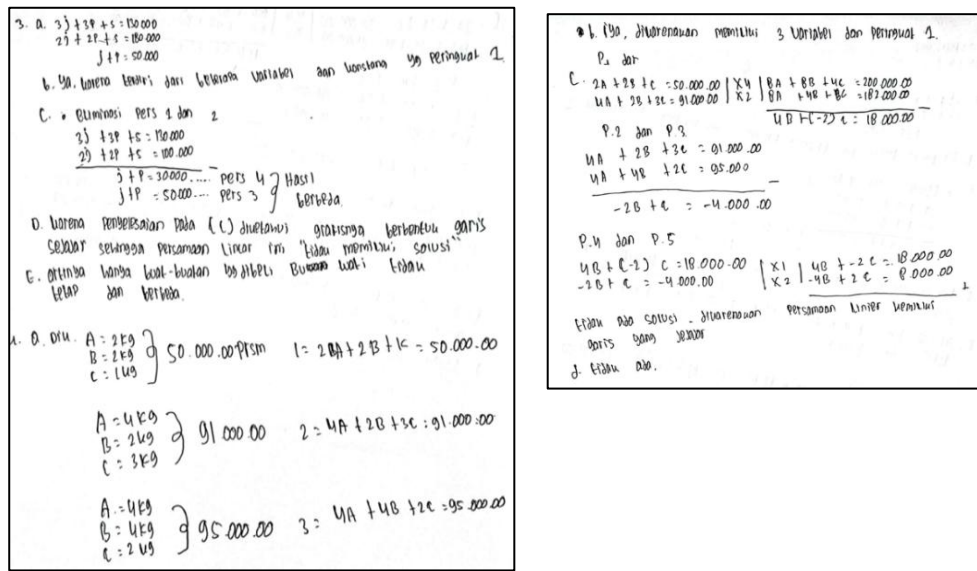 3. a. 3j + 3P + s = 130 000
2j + 2P + s = 100.000
j + P = 50.000
b. Ya, karena terdiri dari beberapa variabel dan konstanta yg peringkat 1
C. • eliminasi Pers 1 dan 2
3j + 3P + s = 130 000
2j + 2P + s = 100.000
j + P = 30000 ..... Pers 4
j + P = 50000 .... Pers 3
Hasil berbeda.
D. karena Penyelesaian Pada (c) diketahui grafiknya berbentuk garis
sejajar sehingga Persamaan linear ini "tidak memiliki solusi"
E. artinya hanya buat-buatan yg dibeli Bu wati tidak
tetap dan berbeda.
4. a. Dik. A = 2kg
B = 2kg
C = 1kg
50.000.00 Prsm 1 = 2A + 2B + 1C = 50.000.00
A = 4kg
B = 2kg
C = 3kg
91 000.00 2 = 4A + 2B + 3C = 91.000.00
A = 4kg
B = 4kg
C = 2kg
95.000.00 3 = 4A + 4B + 2C = 95.000.00
b. Iya, dikarenakan memiliki 3 variabel dan peringkat 1.
P. dar
C. 2A + 2B + C = 50.000.00 | x4 | 8A + 8B + 4C = 200 000.00
4A + 2B + 3C = 91 000.00 | x2 | 8A + 4B + 6C = 182 000.00
4B + (-2) C = 18 000.00
P.2 dan P.3
4A + 2B + 3C = 91 000.00
4A + 4B + 2C = 95.000
-2B + C = -4.000.00
P.4 dan P.5
4B + (-2) C = 18.000.00 | x1 | 4B + -2C = 18 000.00
-2B + C = -4 000.00 | x2 | -4B + 2C = 8.000.00
tidak ada solusi. dikarenakan Persamaan linier memiliki
garis yang sejajar
d. tidak ada.